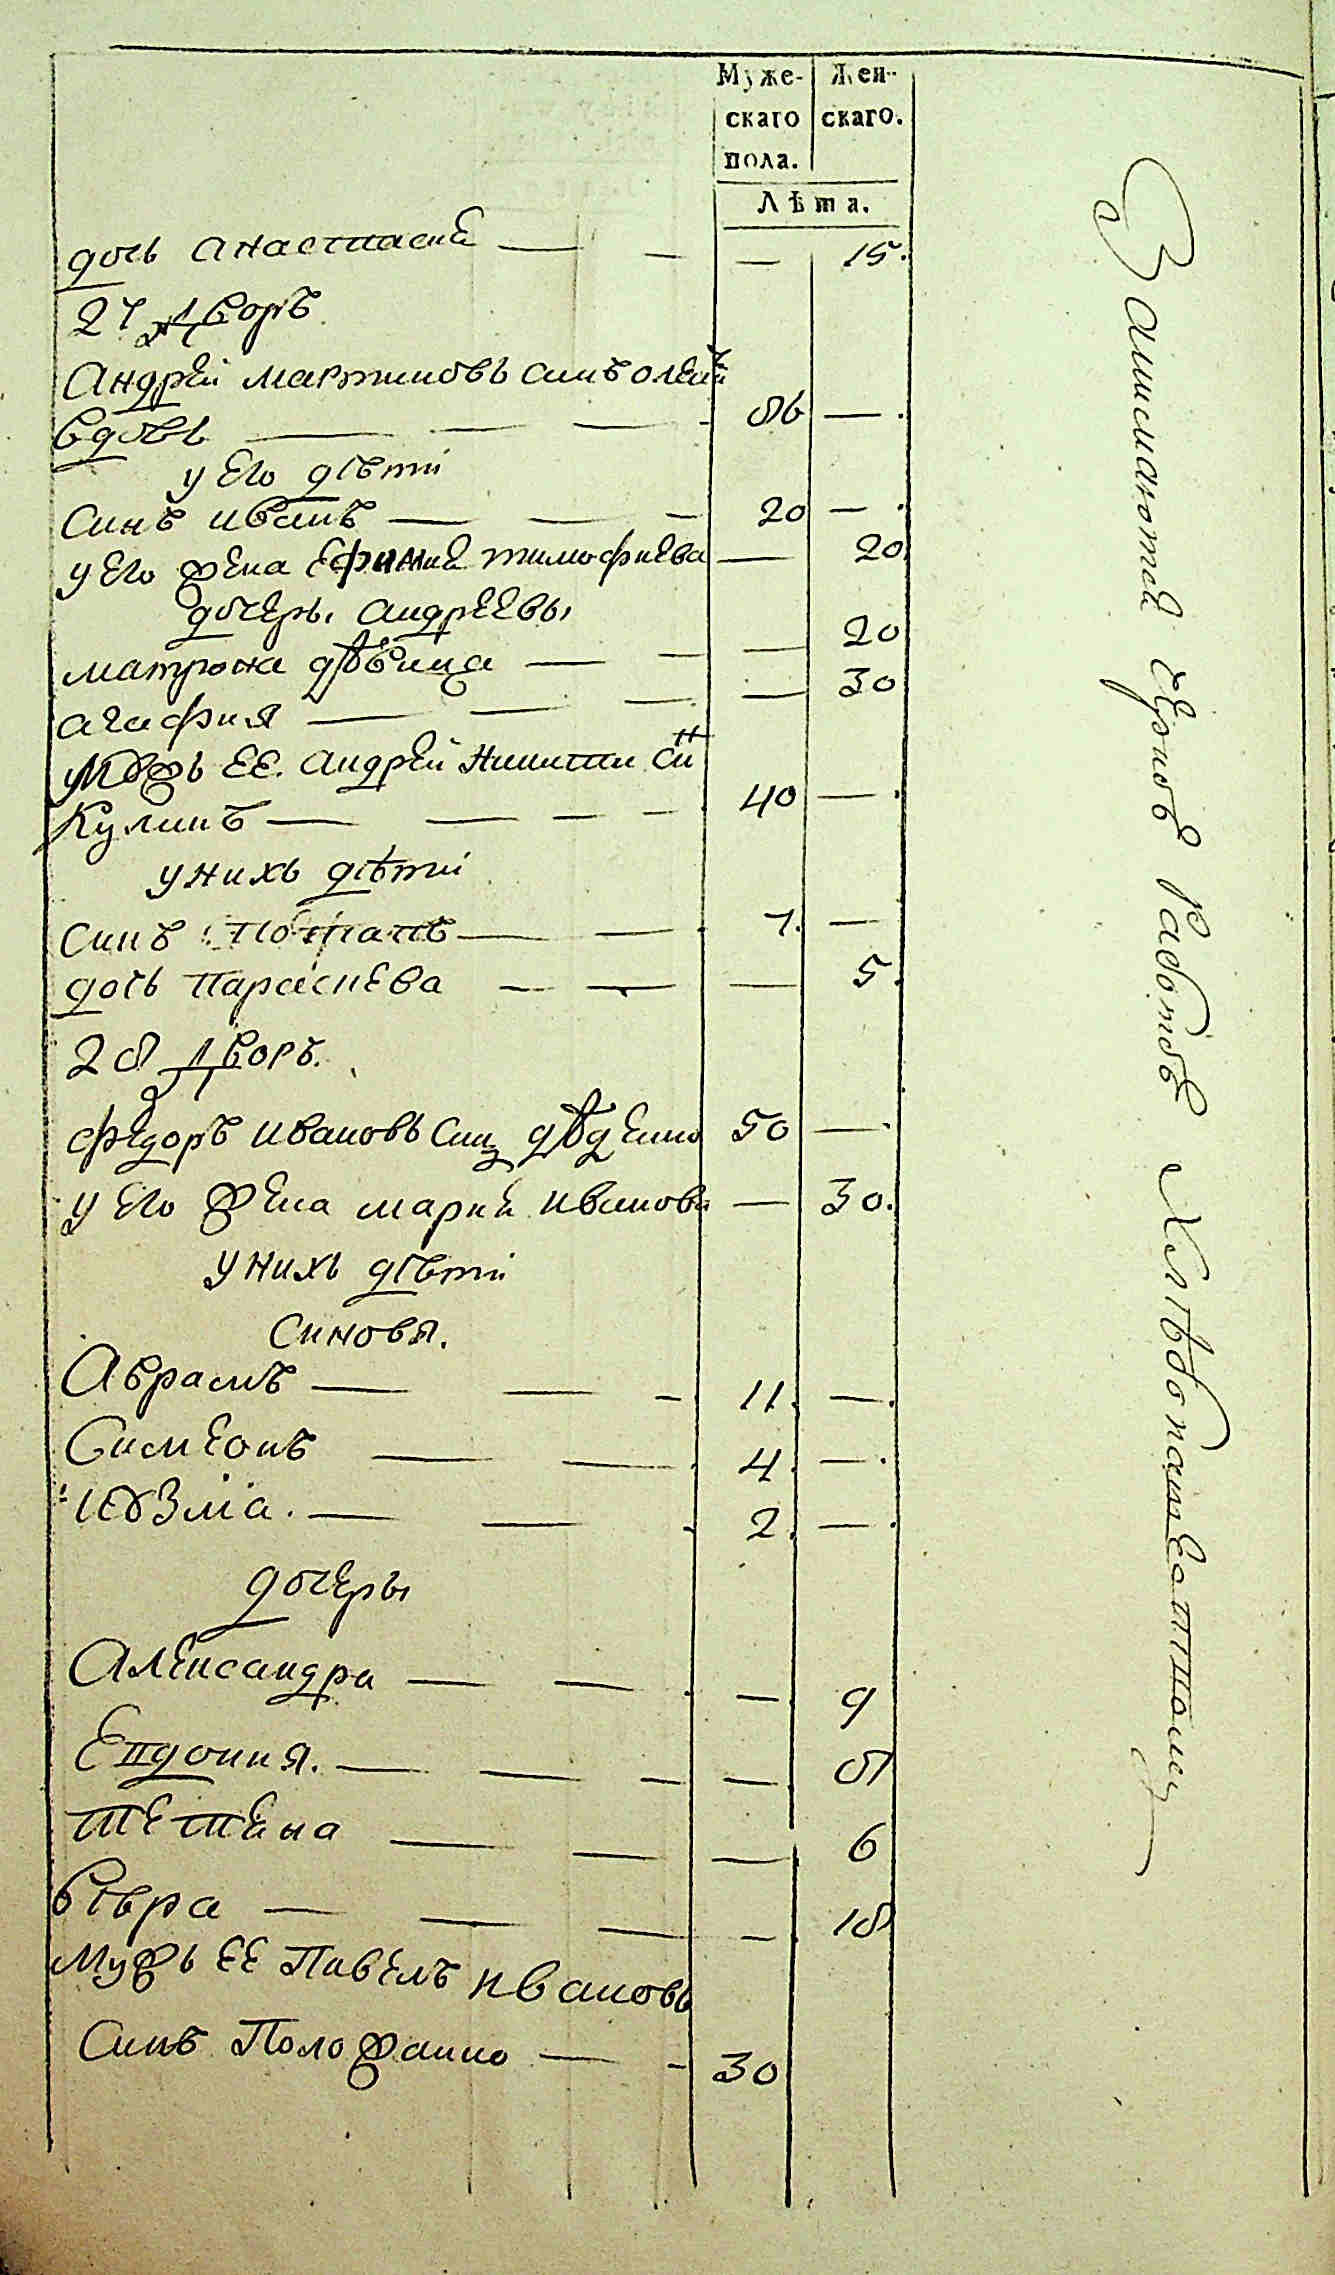 Муже-
скаго
пола.
Жен-
скаго.
Лѣта.
дочь анастасия — — — 15.
27 дворъ
Андрей мартиновъ синъ
вдовъ — — — 86 — .
у его дѣти
Синъ иванъ — — — 20 — .
у его жена Ефимия тимофиева — 20
дочеры андреевы
матрона дѣвица — — — 20
агафия — — — — 30
Мужъ ее. андрей Никити сн
Кулинъ — — — — 40 — .
у нихъ дѣти
Синъ Потапъ — — . 7. —
дочь Параскева — — — 5.
28 дворъ.
Федоръ ивановъ син дѣденко 50 — .
у его жена мария иванова — 30.
у нихъ дѣти
Синовя.
Аврамъ — — — . 11. — .
Симеонъ — — . 4. — .
Кузма. — — . 2. — .
дочеры
Александра — — . — 9
Евдокия. — — — — 8
Тетяна — — — 6
Вѣвра — — — — 18
Мужъ ее Павелъ ивановъ
Синъ Положаино — — 30
Занимаются Ерновъ работовъ Хлѣбопашественную